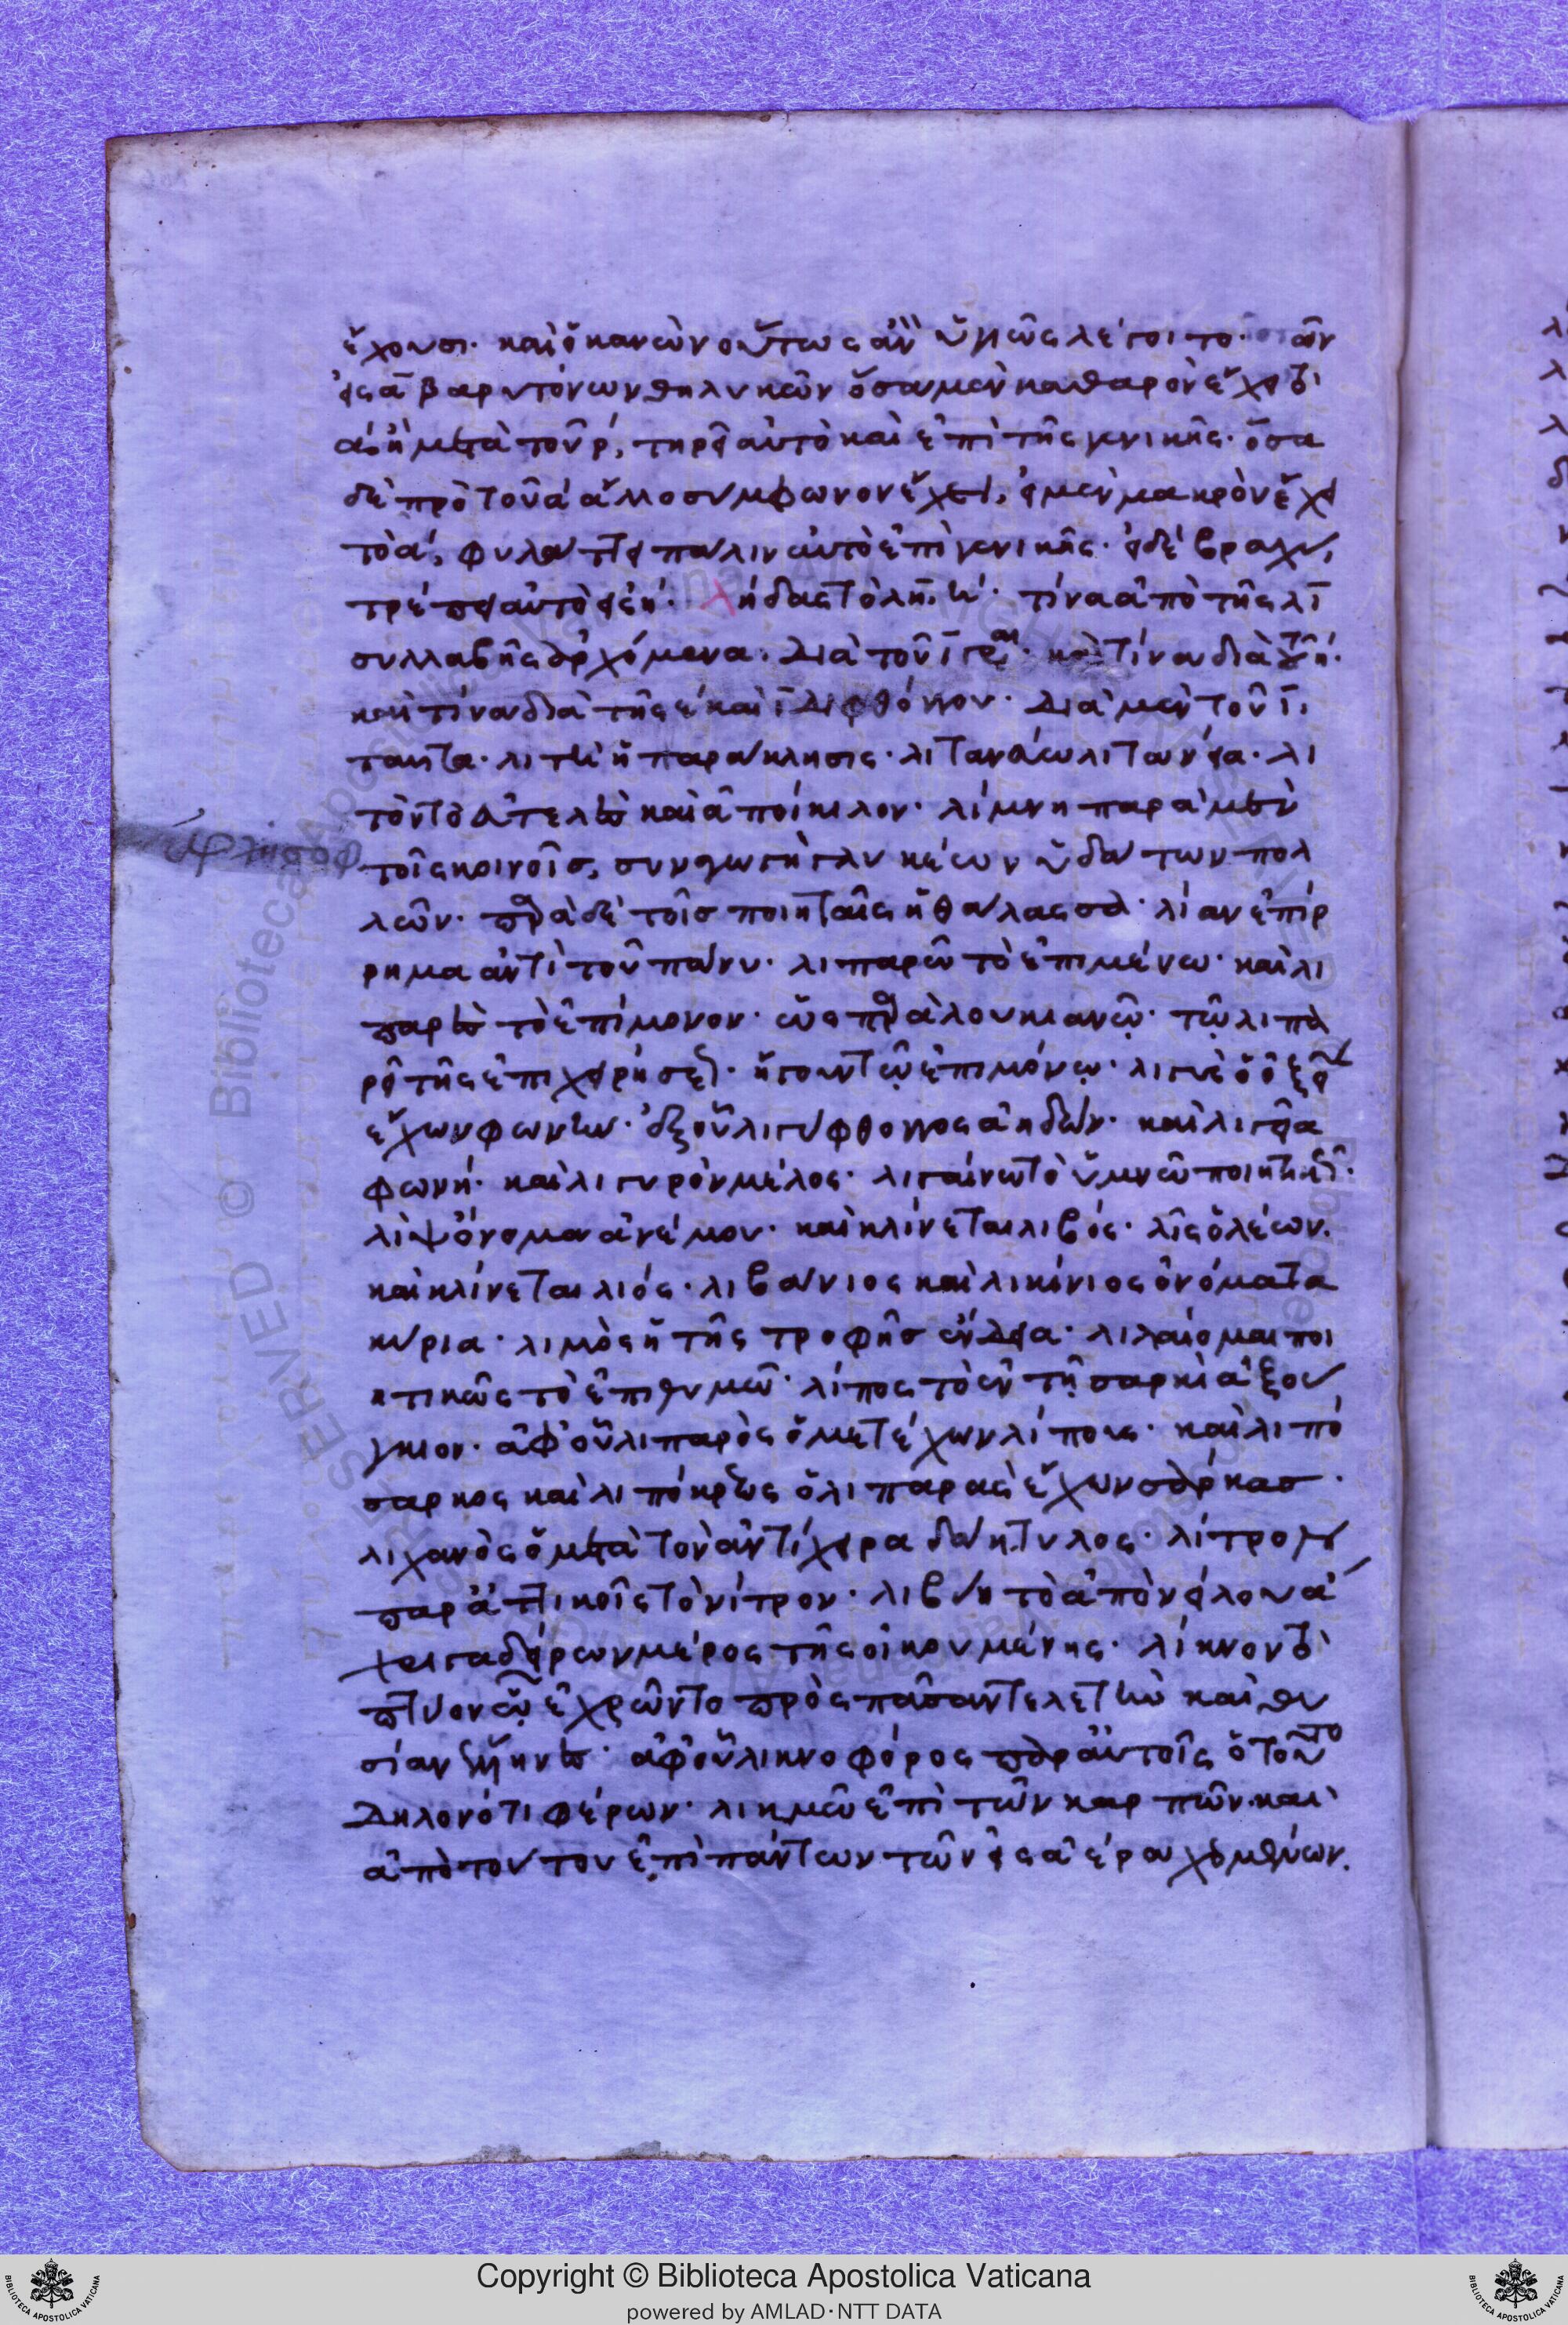 ἔχουσι· καὶ ὁ κανὼν οὕτως ἂν ὑμῶς λέγοιτο· τῶν
εἰς α βαρυτόνων θηλυκῶν ὅσα μὲν καθαρὸν ἔχει τὸ
α, ἢ μετὰ τοῦ ρ, τηρεῖ αὐτὸ καὶ ἐπὶ τῆς γενικῆς· ὅσα
δὲ πρὸ τοῦ α ἄλλο σύμφωνον ἔχει, εἰ μὲν μακρὸν ἔχει
τὸ α, φυλάττει πάλιν αὐτὸ ἐπὶ γενικῆς· εἰ δὲ βραχύ,
τρέπει αὐτὸ εἰς η· λήδας τὸ λη, η· τίνα ἀπὸ τῆς λι
συλλαβῆς ἀρχόμενα. διὰ τοῦ ι γράφεται· καὶ τίνα διὰ τοῦ η·
καὶ τίνα διὰ τῆς ε καὶ ι διφθόγγου· διὰ μὲν τοῦ ι,
ταῦτα· λιτὴ ἡ παράκλησις· λιτανεύω λιτανεία· λι
τὸν τὸ ἀτελὲς καὶ ἀποίκιλον· λίμνη παρὰ μὲν
τοῖς κοινοῖς, συναγωγὴ γλυκέων ὑδάτων πολ
λῶν· παρὰ δὲ τοῖς ποιηταῖς ἡ θάλασσα· λίαν ἐπίρ
ρημα ἀντὶ τοῦ πάνυ· λιπαρῶ τὸ ἐπιμένω· καὶ λι
παρὲς τὸ ἐπίμονον· ὡς παρὰ λουκιανῷ· τῷ λιπα
ρεῖ τῆς ἐπιχειρήσεως· ἤγουν τῷ ἐπιμόνῳ· λιγὺς ὁ ὀξεῖαν
ἔχων φωνήν· ἐξ οὗ λιγύφθογγος ἀηδών· καὶ λιγεῖα
φωνή· καὶ λιγυρὸν μέλος· λιγαίνω τὸ ὑμνῶ ποιητικῶς·
λὶψ ὄνομα ἀνέμου· καὶ κλίνεται λιβός· λῖς ὁ λέων.
καὶ κλίνεται λιός· λιβάνιος καὶ λικίνιος ὀνόματα
κύρια· λιμὸς ἡ τῆς τροφῆς ἔνδεια· λιλαίομαι ποι
ητικῶς τὸ ἐπιθυμῶ· λίπος τὸ ἐν τῇ σαρκὶ ἀξού
γκιον· ἀφ' οὗ λιπαρὸς ὁ μετέχων λίπους· καὶ λιπό
σαρκος καὶ λιπόκρεως ὁ λιπαρὰς ἔχων σάρκας·
λιχανὸς ὁ μετὰ τὸν ἀντίχειρα δάκτυλος· λίτρον
παρ' ἀττικοῖς τὸ νίτρον· λιβύη τὸ ἀπὸ νείλου ἄ
χρι γαδείρων μέρος τῆς οἰκουμένης· λίκνον τὸ
πτύον ᾧ ἐχρῶντο πρὸς πᾶσαν τελετὴν καὶ θυ
σίαν ἕλληνες· ἀφ' οὗ λικνοφόρος παρ' αὐτοῖς ὁ τοῦτο
δηλονότι φέρων· λικμῶ ἐπὶ τῶν καρπῶν· καὶ
ἀπὸ τούτου ἐπὶ πάντων τῶν εἰς ἀέρα χεομένων.